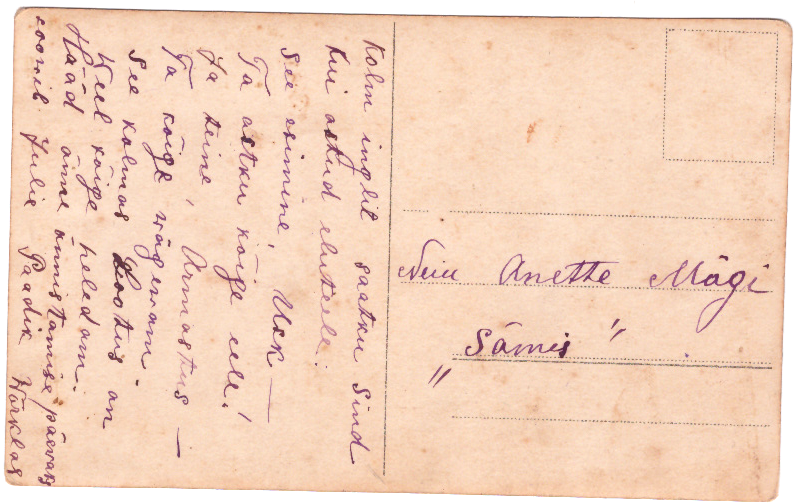 Kolm inglit saatku Sind
Kui astud eluteele:
See esimine, Usk —
Ta astku kõige eele!
Ja teine, Armastus —
Ta kõige wägewam.
See kolmas Lootus on
Weel kõige heledam.
Hääd õnne õnnistamise päewaks
soowib Julie Paadik Wõrklas
Neiu Anette Mägi
"Sämis"